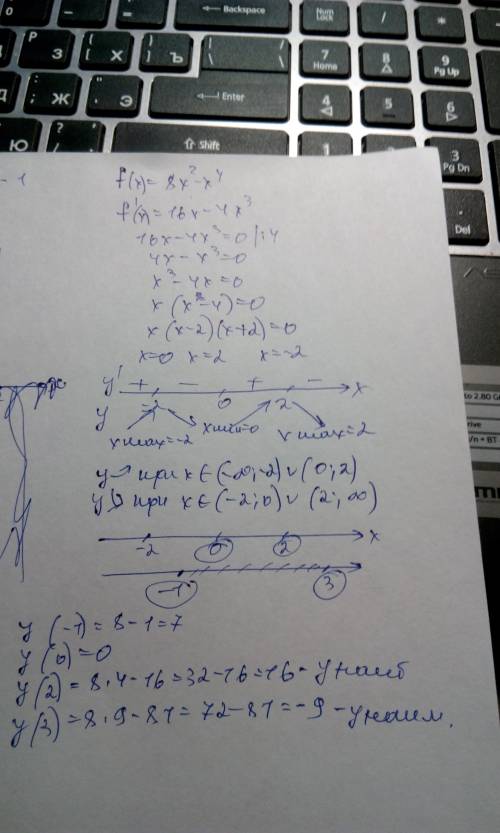 Backspace
Num Lock
/
*
Р З
{ [ Х
} ] Ъ
| \ /
7 Home
8
9 Pg Up
: ; Ж
" ' Э
Enter
4
5
6
Ю
? / ,
Shift
1
3 Pg Dn
Del
to 2.80 G
rive
/n + BT
- 1
f(x) = 8x² - x⁴
f'(x) = 16x - 4x³
16x - 4x³ = 0 | : 4
4x - x³ = 0
x³ - 4x = 0
x (x² - 4) = 0
x (x-2) (x+2) = 0
x=0 x=2 x=-2
y' + - + - x
y -2 0 2
x max=-2 x min=0 x max=2
y ↗ при x ∈ (-∞; -2) ∪ (0; 2)
y ↘ при x ∈ (-2; 0) ∪ (2; ∞)
-2 0 2 x
-1 3
y (-1) = 8 - 1 = 7
y (0) = 0
y (2) = 8·4 - 16 = 32 - 16 = 16 - y наиб
y (3) = 8·9 - 81 = 72 - 81 = -9 - y наим.